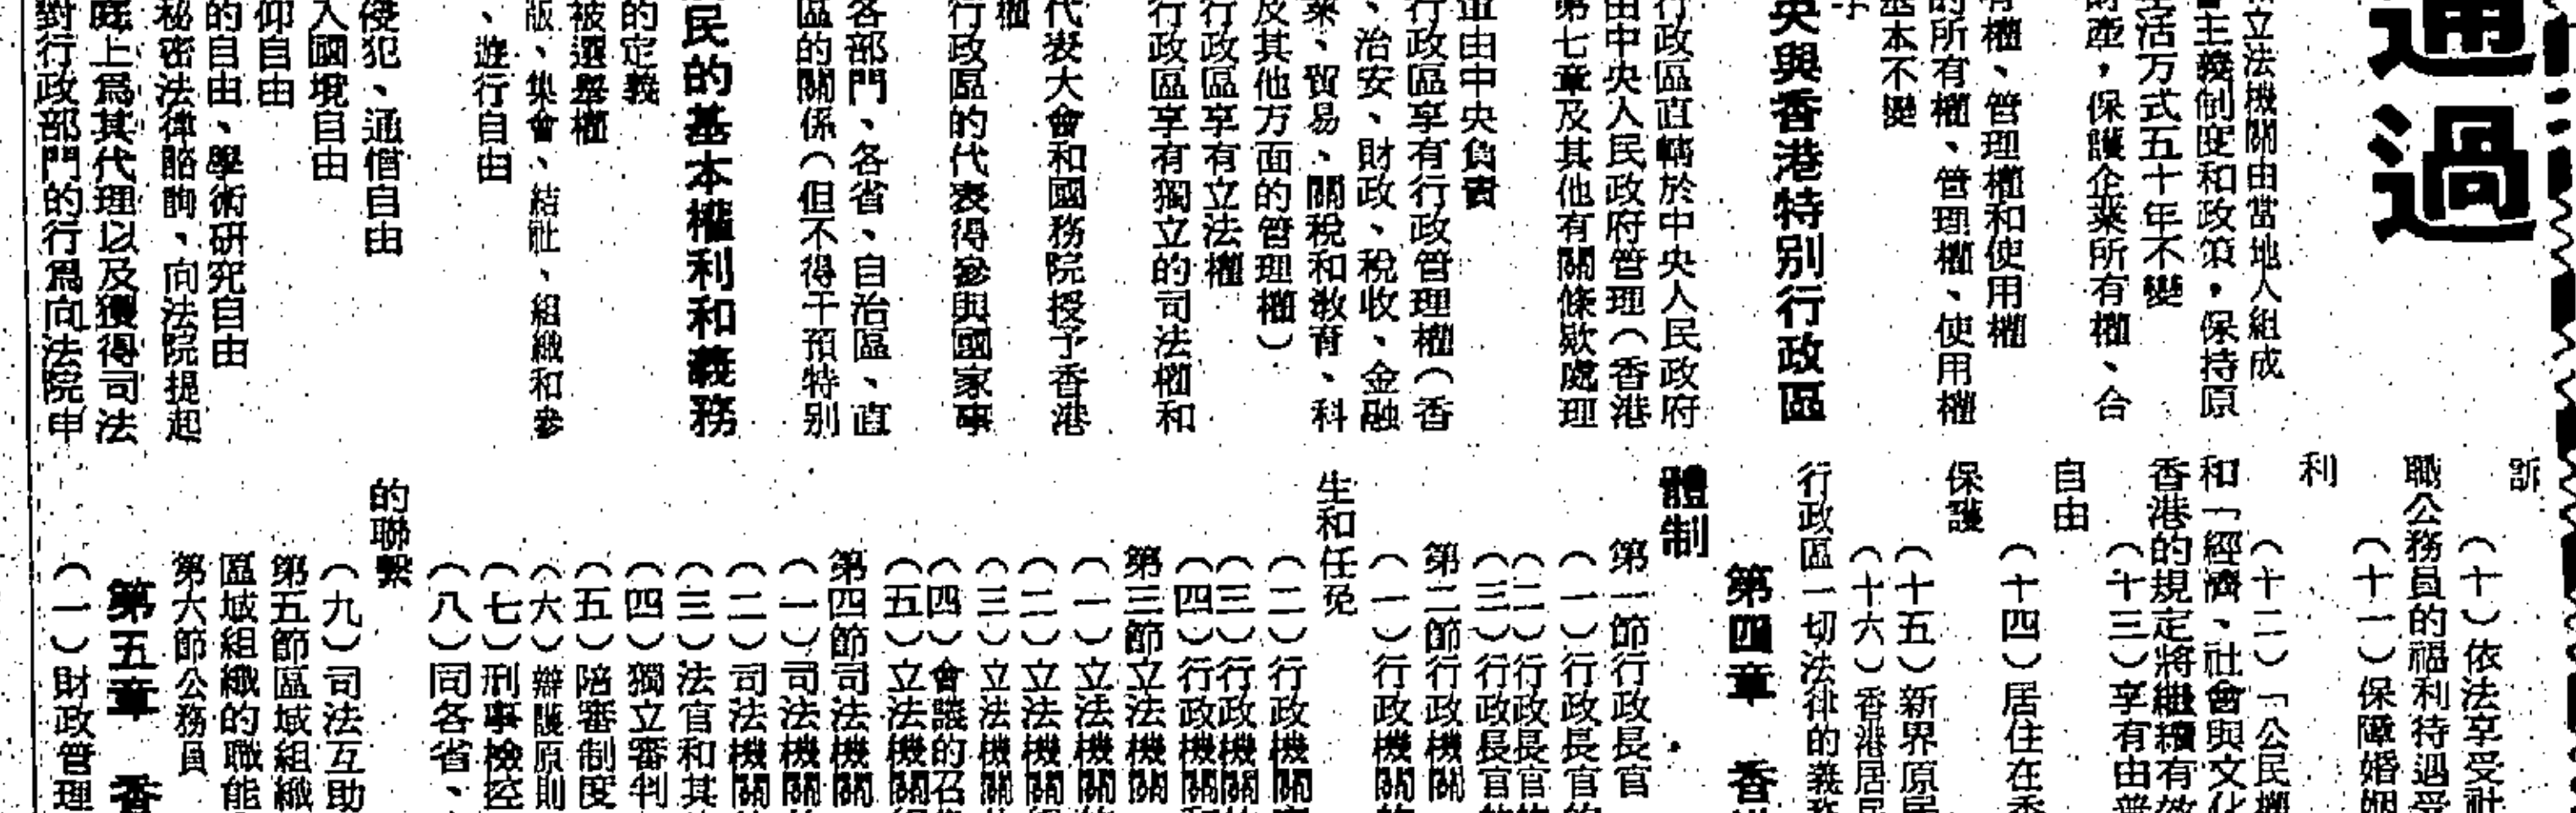 通過
立法機關由當地人組成
主義制度和政策，保持原
生活方式五十年不變
財產，保護企業所有權、合
有權、管理權和使用權
的所有權、管理權、使用權
基本不變
與香港特別行政區
行政區直轄於中央人民政府
由中央人民政府管理（香港
第七章及其他有關條款處理
由中央負責
行政區享有行政管理權（香
、治安、財政、稅收、金融
業、貿易、關稅和教育、科
及其他方面的管理權）
行政區享有立法權
行政區享有獨立的司法權和
代表大會和國務院授予香港
權
行政區的代表得參與國家事
各部門、各省、自治區、直
區的關係（但不得干預特別
民的基本權利和義務
的定義
被選舉權
版、集會、結社、組織和參
、遊行自由
侵犯、通信自由
入國境自由
仰自由
的自由、學術研究自由
秘密法律諮詢、向法院提起
庭上為其代理以及獲得司法
對行政部門的行為向法院申
訴
（十）依法享受社
職公務員的福利待遇受
（十一）保障婚姻
利
（十二）「公民權
和「經濟、社會與文化
香港的規定將繼續有效
（十三）享有由普
自由
（十四）居住在香
保護
（十五）新界原居
（十六）香港居民
行政區一切法律的義務
第四章 香
體制
第一節行政長官
（一）行政長官的
（二）行政長官
（三）行政長官
第二節行政機關
（一）行政機關
生和任免
（二）行政機關
（三）行政機關
（四）行政機關
第三節立法機關
（一）立法機關
（二）立法機關
（三）立法機關
（四）會議的召
（五）立法機關
第四節司法機關
（一）司法機關
（二）司法機關
（三）法官和其
（四）獨立審判
（五）陪審制度
（六）辯護原則
（七）刑事檢控
（八）同各省、
的聯繫
（九）司法互助
第五節區域組織
區域組織的職能
第六節公務員
第五章 香
（一）財政管理